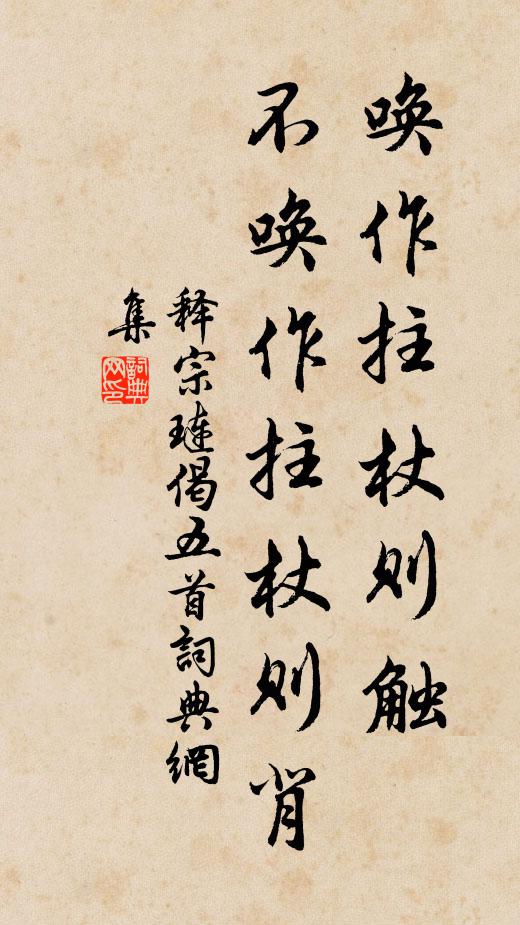 唤作拄杖则触
不唤作拄杖则背
释宗琏偈五首詞典網
集
詞典网印